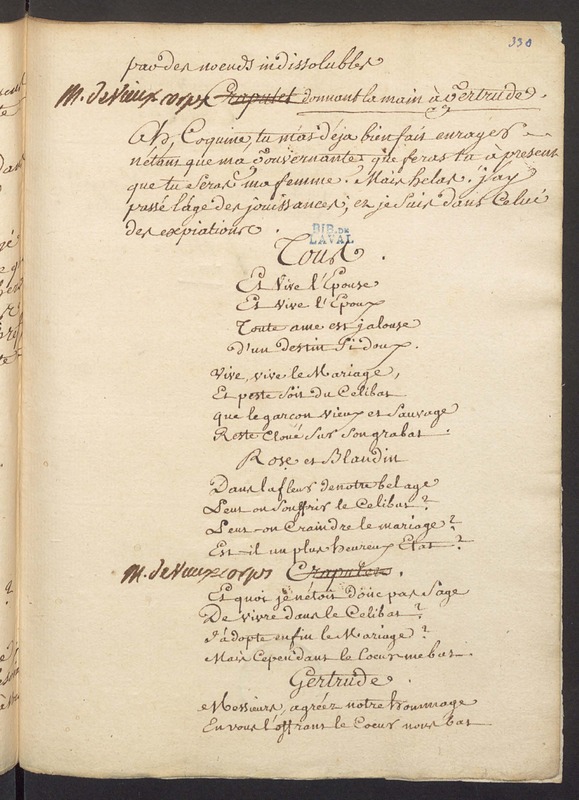 330
par des noeuds indissolubles
M. de Vieux corps Crapulet donnant la main à Gertrude.
Ah, Coquine, tu m'as deja bien fait enrager
n'étant que ma Gouvernante que feras tu à present
que tu seras ma femme. Mais helas. j'ay
passé l'âge des jouissances; et je suis dans celui
des expiations.
BIB. DE
LAVAL
Tous.
Et Vive l'Epouse
Et Vive l'Epoux
Toute ame est jalouse
D'un destin si doux.
Vive, vive le Mariage,
Et peste soit du Celibat
que le garçon vieux et sauvage
Reste Cloué sur son grabat.
Rose et Blandin
Dans la fleur de notre bel age
Peut on souffrir le Celibat?
Peut-on Craindre le mariage?
Est-il un plus heureux Etat?
M. de Vieux corps Crapulet.
Et quoi je n'étois donc pas sage
De vivre dans le Celibat?
J'adopte enfin le Mariage?
Mais Cependant le Coeur me bat
Gertrude.
Messieurs, agréez notre hommage
En vous l'offrant le Coeur nous bat